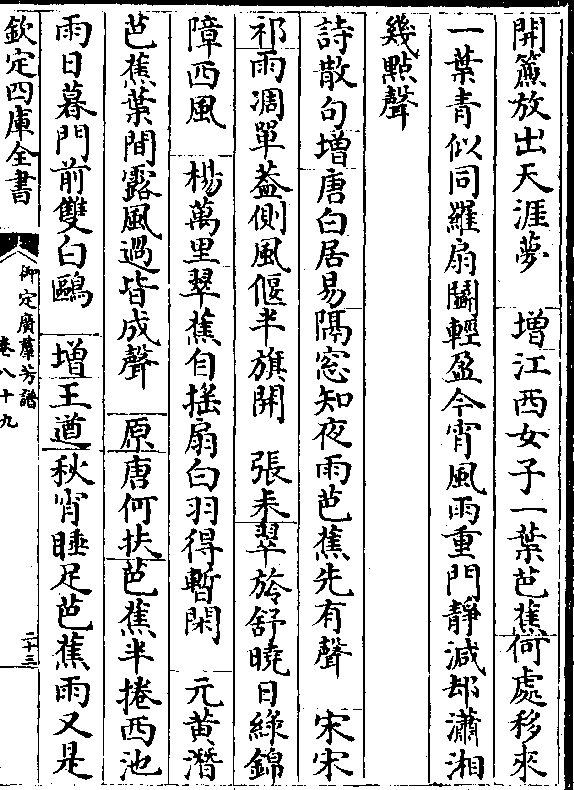 開簾放出天涯夢　增江西女子一葉芭蕉何處移來
一葉青似同羅扇鬭輕盈今宵風雨重門靜減却瀟湘
幾點聲
詩散句增唐白居易隔窻知夜雨芭蕉先有聲　宋宋
祁雨凋單葢側風偃半旗開　張耒翠於舒曉日綠錦
障西風　楊萬里翠蕉自摇扇白羽得暫閑　元黄潛
芭蕉葉間露風過皆成聲　原唐何扶芭蕉半捲西池
雨日暮門前雙白鷗　增王遒秋宵睡足芭蕉雨又是
欽定四庫全書
御定廣羣芳譜
卷八十九
二十三